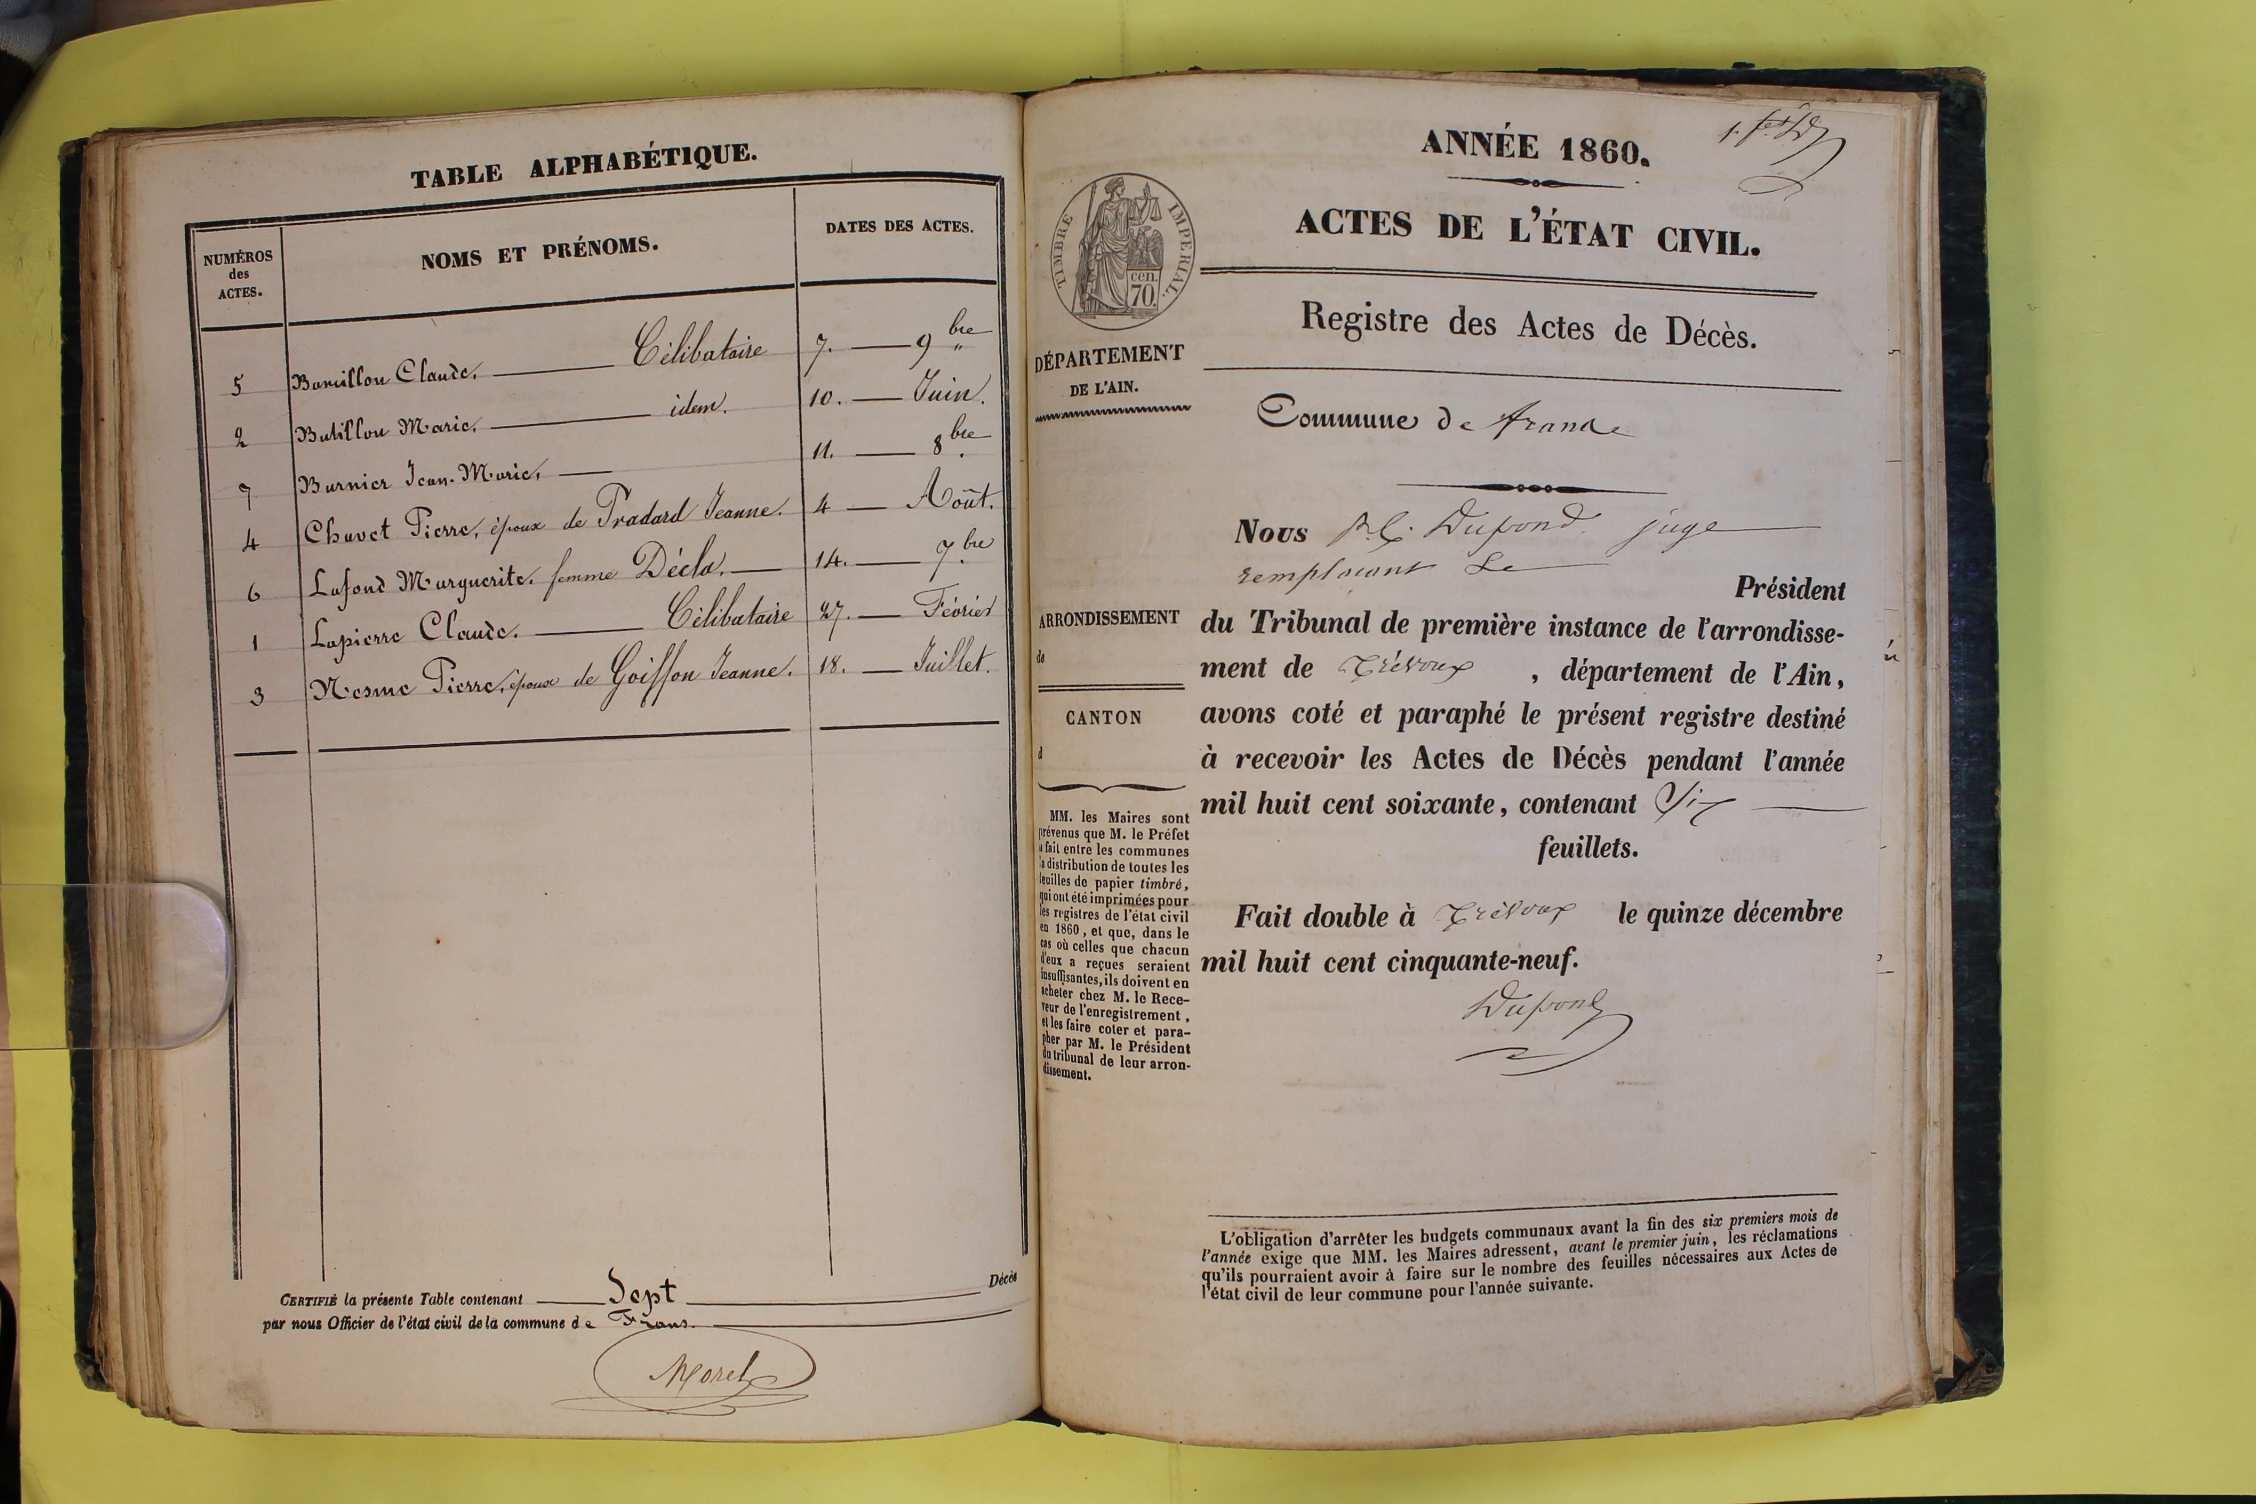 TABLE ALPHABÉTIQUE.
NUMÉROS
des
ACTES.
NOMS ET PRÉNOMS.
DATES DES ACTES.
5 Barillon Claude. Célibataire 7. 9bre
2 Batillon Marie. idem. 10. Juin.
7 Burnier Jean-Marie. 11. 8bre
4 Chavet Pierre, époux de Pradard Jeanne. 4 Août.
6 Lafond Marguerite. femme Décla. 14. 7bre
1 Lapierre Claude. Célibataire 27. Février
3 Mesme Pierre, époux de Goiffon Jeanne. 18. Juillet.
CERTIFIÉ la présente Table contenant Sept Décès
par nous Officier de l'état civil de la commune de Frans.
Morel
ANNÉE 1860.
ACTES DE L'ÉTAT CIVIL.
TIMBRE IMPERIAL.
cen.
70.
Registre des Actes de Décès.
DÉPARTEMENT
DE L'AIN.
Commune de
Nous Dupond juge
remplacant Le
Président
ARRONDISSEMENT
de
CANTON
d
du Tribunal de première instance de l'arrondisse-
ment de Trévoux, département de l'Ain,
avons coté et paraphé le présent registre destiné
à recevoir les Actes de Décès pendant l'année
mil huit cent soixante, contenant Six
feuillets.
Fait double à Trévoux le quinze décembre
mil huit cent cinquante-neuf.
Dupond
MM. les Maires sont
prévenus que M. le Préfet
a fait entre les communes
la distribution de toutes les
feuilles de papier timbré,
qui ont été imprimées pour
les registres de l'état civil
en 1860, et que, dans le
cas où celles que chacun
d'eux a reçues seraient
insuffisantes, ils doivent en
acheter chez M. le Rece-
veur de l'enregistrement,
et les faire coter et para-
pher par M. le Président
du tribunal de leur arron-
dissement.
L'obligation d'arrêter les budgets communaux avant la fin des six premiers mois de
l'année exige que MM. les Maires adressent, avant le premier juin, les réclamations
qu'ils pourraient avoir à faire sur le nombre des feuilles nécessaires aux Actes de
l'état civil de leur commune pour l'année suivante.